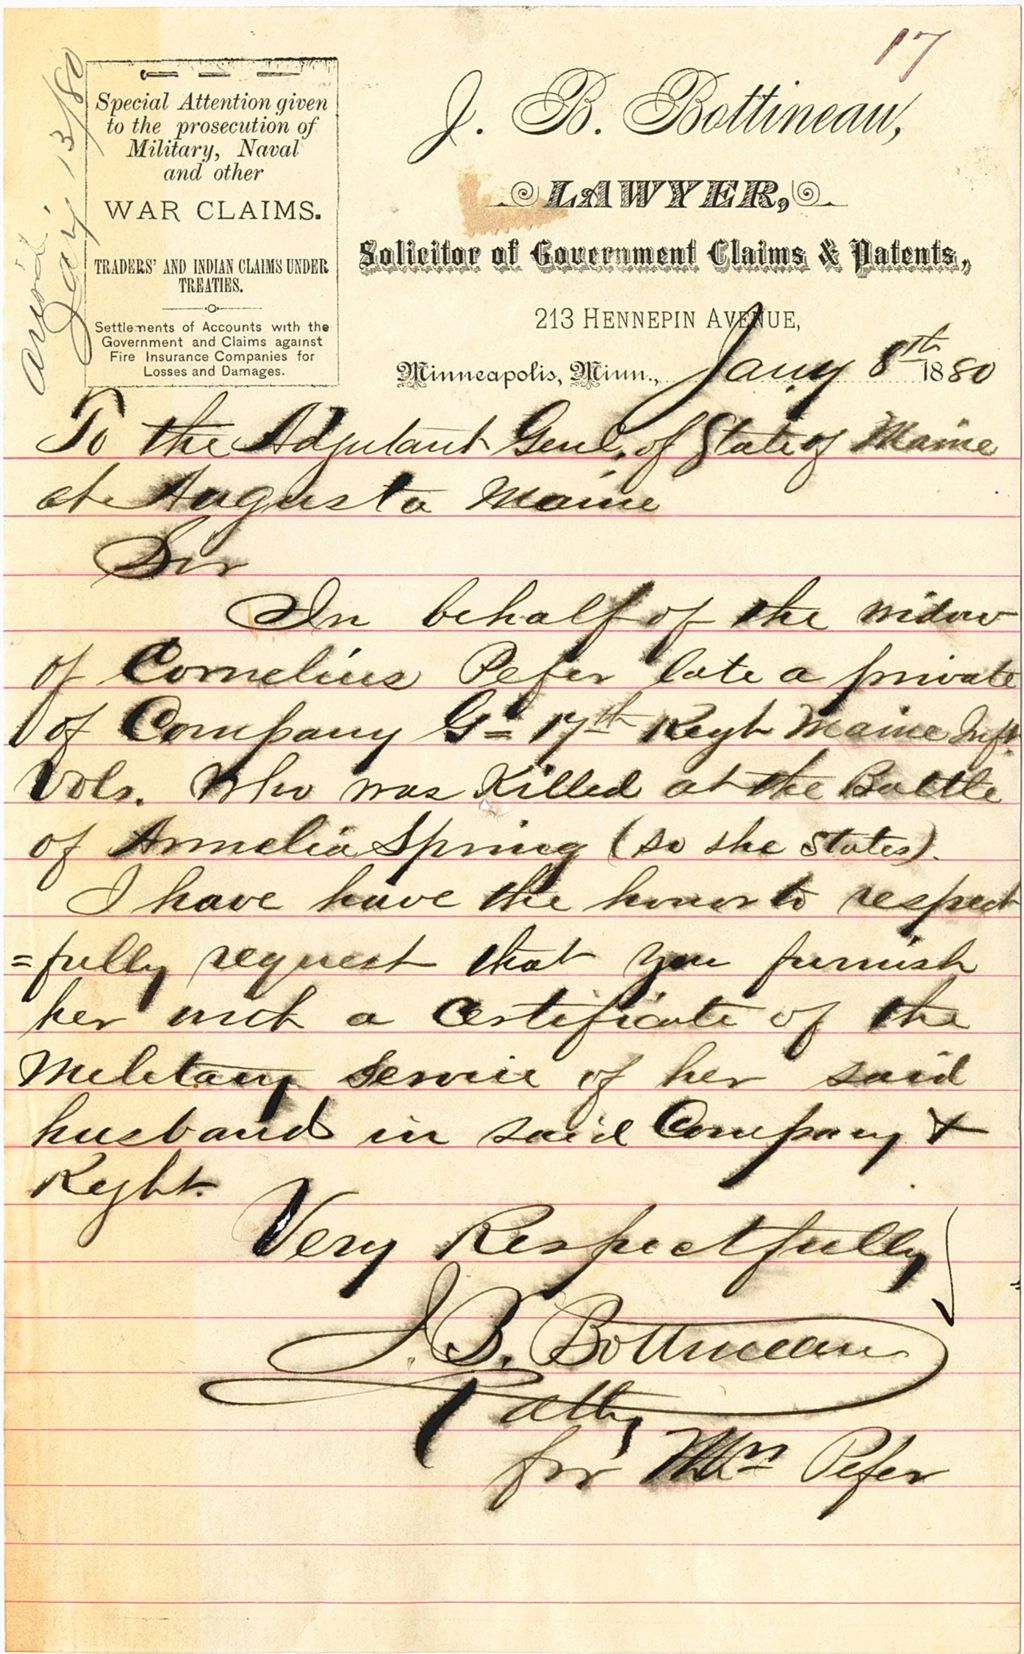 17
answd Jany 13/80
Special Attention given
to the prosecution of
Military, Naval
and other
WAR CLAIMS.
TRADERS' AND INDIAN CLAIMS UNDER
TREATIES.
Settlements of Accounts with the
Government and Claims against
Fire Insurance Companies for
Losses and Damages.
J. B. Bottineau,
LAWYER,
Solicitor of Government Claims & Patents,
213 HENNEPIN AVENUE,
Minneapolis, Minn., Jany 8th 1880
To the Adjutant Genl. of State of Maine
at Augusta Maine
Sir
In behalf of the widow
of Cornelius Pefer late a private
of Company G= 17th Regt Maine Inft
Vols. Who was Killed at the Battle
of Armelia Spring (so she states).
I have have the honor to respect
=fully request that you furnish
her with a Certificate of the
Military Service of her said
husband in said Company &
Reght.
Very Respectfully
J. B. Bottineau
atty
for Mrs Pefer